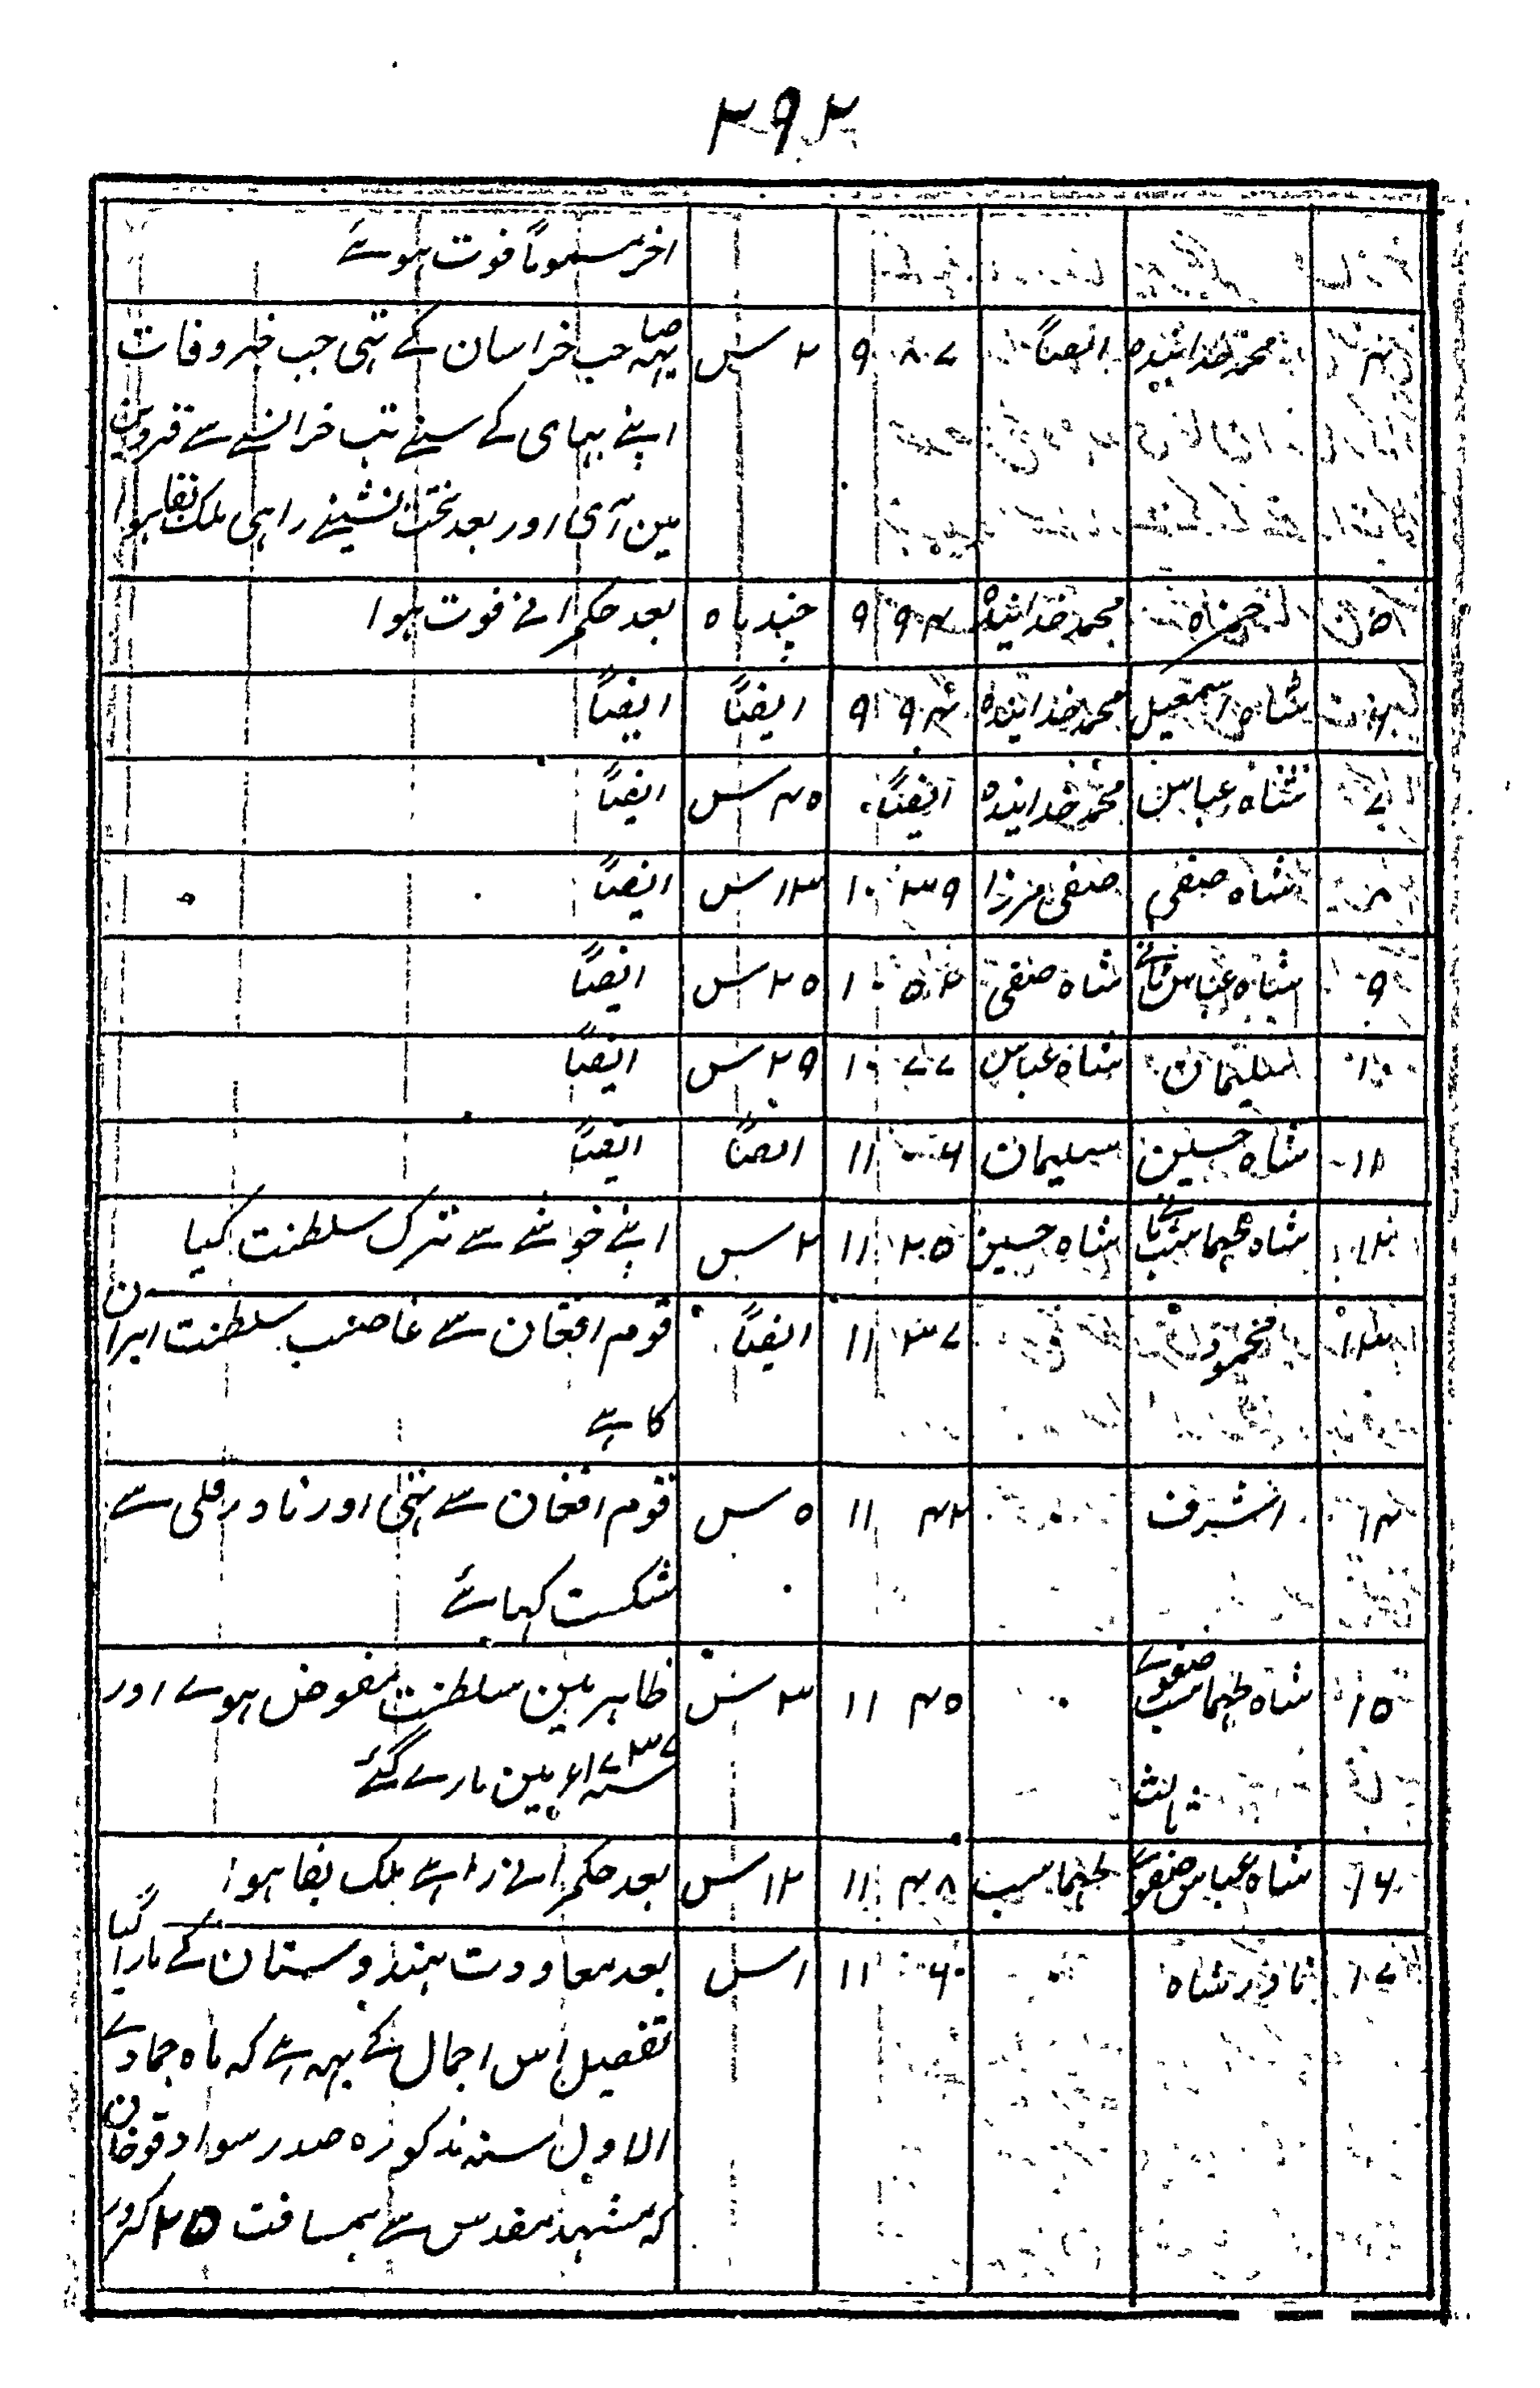 ۳۹۲
اخر مسموماً فوت ہوئے
۴ محمد خدابندہ ایضاً ۹۸۷ ۲ س یہہ صاحب خراسان کے تہی جب خبر وفات
اپنے بہای کے سنے تب خراسان سے قزوین
مین آی اور بعد تخت نشینے راہی ملک بقا ہوا
۵ حمزہ محمد خدابندہ ۹۹۴ چند ماہ بعد حکمرانے فوت ہوا
۶ شاہ اسمعیل محمد خدابندہ ۹۹۴ ایضاً ایضاً
۷ شاہ عباس محمد خدابندہ ایضاً ۴۵ س ایضاً
۸ شاہ صفی صفی مرزا ۱۰۳۹ ۱۳ س ایضاً
۹ شاہ عباس ثانے شاہ صفی ۱۰۵۲ ۲۵ س ایضاً
۱۰ سلیمان شاہ عباس ۱۰۷۷ ۲۹ س ایضاً
۱۱ شاہ حسین سلیمان ۱۱۰۶ ایضاً ایضاً
۱۲ شاہ طہماسب ثانے شاہ حسین ۱۱۲۵ ۲ س اپنے خوشے سے ترک سلطنت کیا
۱۳ محمود ۱۱۳۷ ایضاً قوم افغان سے غاصب سلطنت ایران
کا ہے
۱۴ اشرف ۱۱۴۲ ۵ س قوم افغان سے تہی اور نادر قلی سے
شکست کہائے
۱۵ شاہ طہماسب صفوے ۱۱۴۵ ۳ س ظاہر مین سلطنت مفوض ہوے اور
ثالث سنہ ۱۷۳۷ء مین مارے گئے
۱۶ شاہ عباس صفوے طہماسب ۱۱۴۸ ۱۲ س بعد حکمرانے راہے ملک بقا ہوا
۱۷ نادر شاہ ۱۱۶۰ ۱ س بعد معاودت ہندوستان کے مارا گیا
تفصیل اس اجمال کے یہہ ہے کہ ماہ جمادے
الاول سنہ مذکورہ صدر سواد قوخان
کہ مشہد مقدس سے بمسافت ۲۵ کروہ